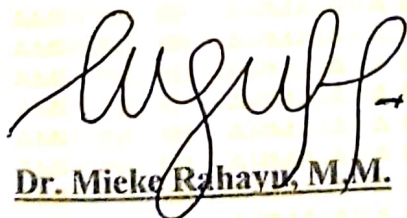 Dr. Mieke Rahayu, M.M.